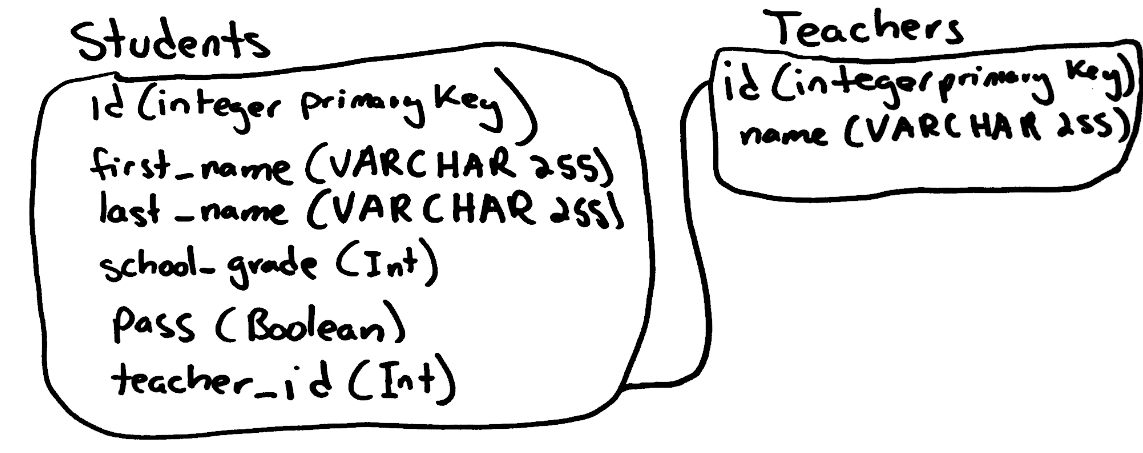 Students
id (integer primary Key)
first_name (VARCHAR 255)
last_name (VARCHAR 255)
school_grade (Int)
Pass (Boolean)
teacher_id (Int)
Teachers
id (integer primary Key)
name (VARCHAR 255)